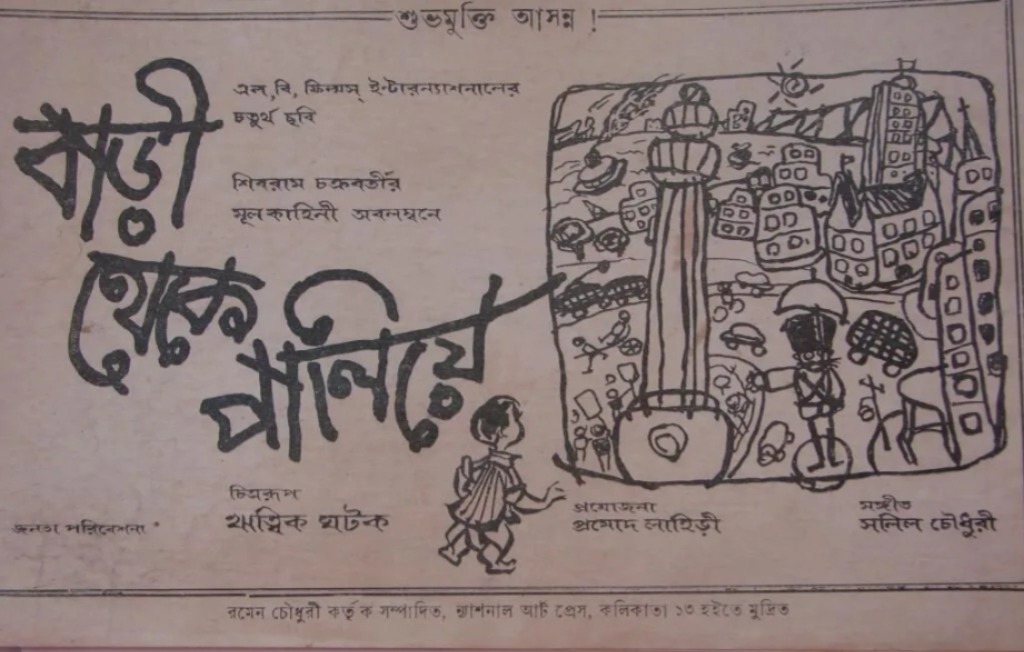 শুভমুক্তি আসন্ন !
বাড়ী
থেকে
পালিয়ে
এল, বি, ফিল্মস্ ইন্টারন্যাশনালের
চতুর্থ ছবি
শিবরাম চক্রবর্তীর
মূল কাহিনী অবলম্বনে
চিত্ররূপ
ঋত্বিক ঘটক
প্রযোজনা
প্রমোদ লাহিড়ী
সঙ্গীত
সলিল চৌধুরী
জনতা পরিবেশনা
রমেন চৌধুরী কর্তৃক সম্পাদিত, ন্যাশনাল আর্ট প্রেস, কলিকাতা ১৩ হইতে মুদ্রিত